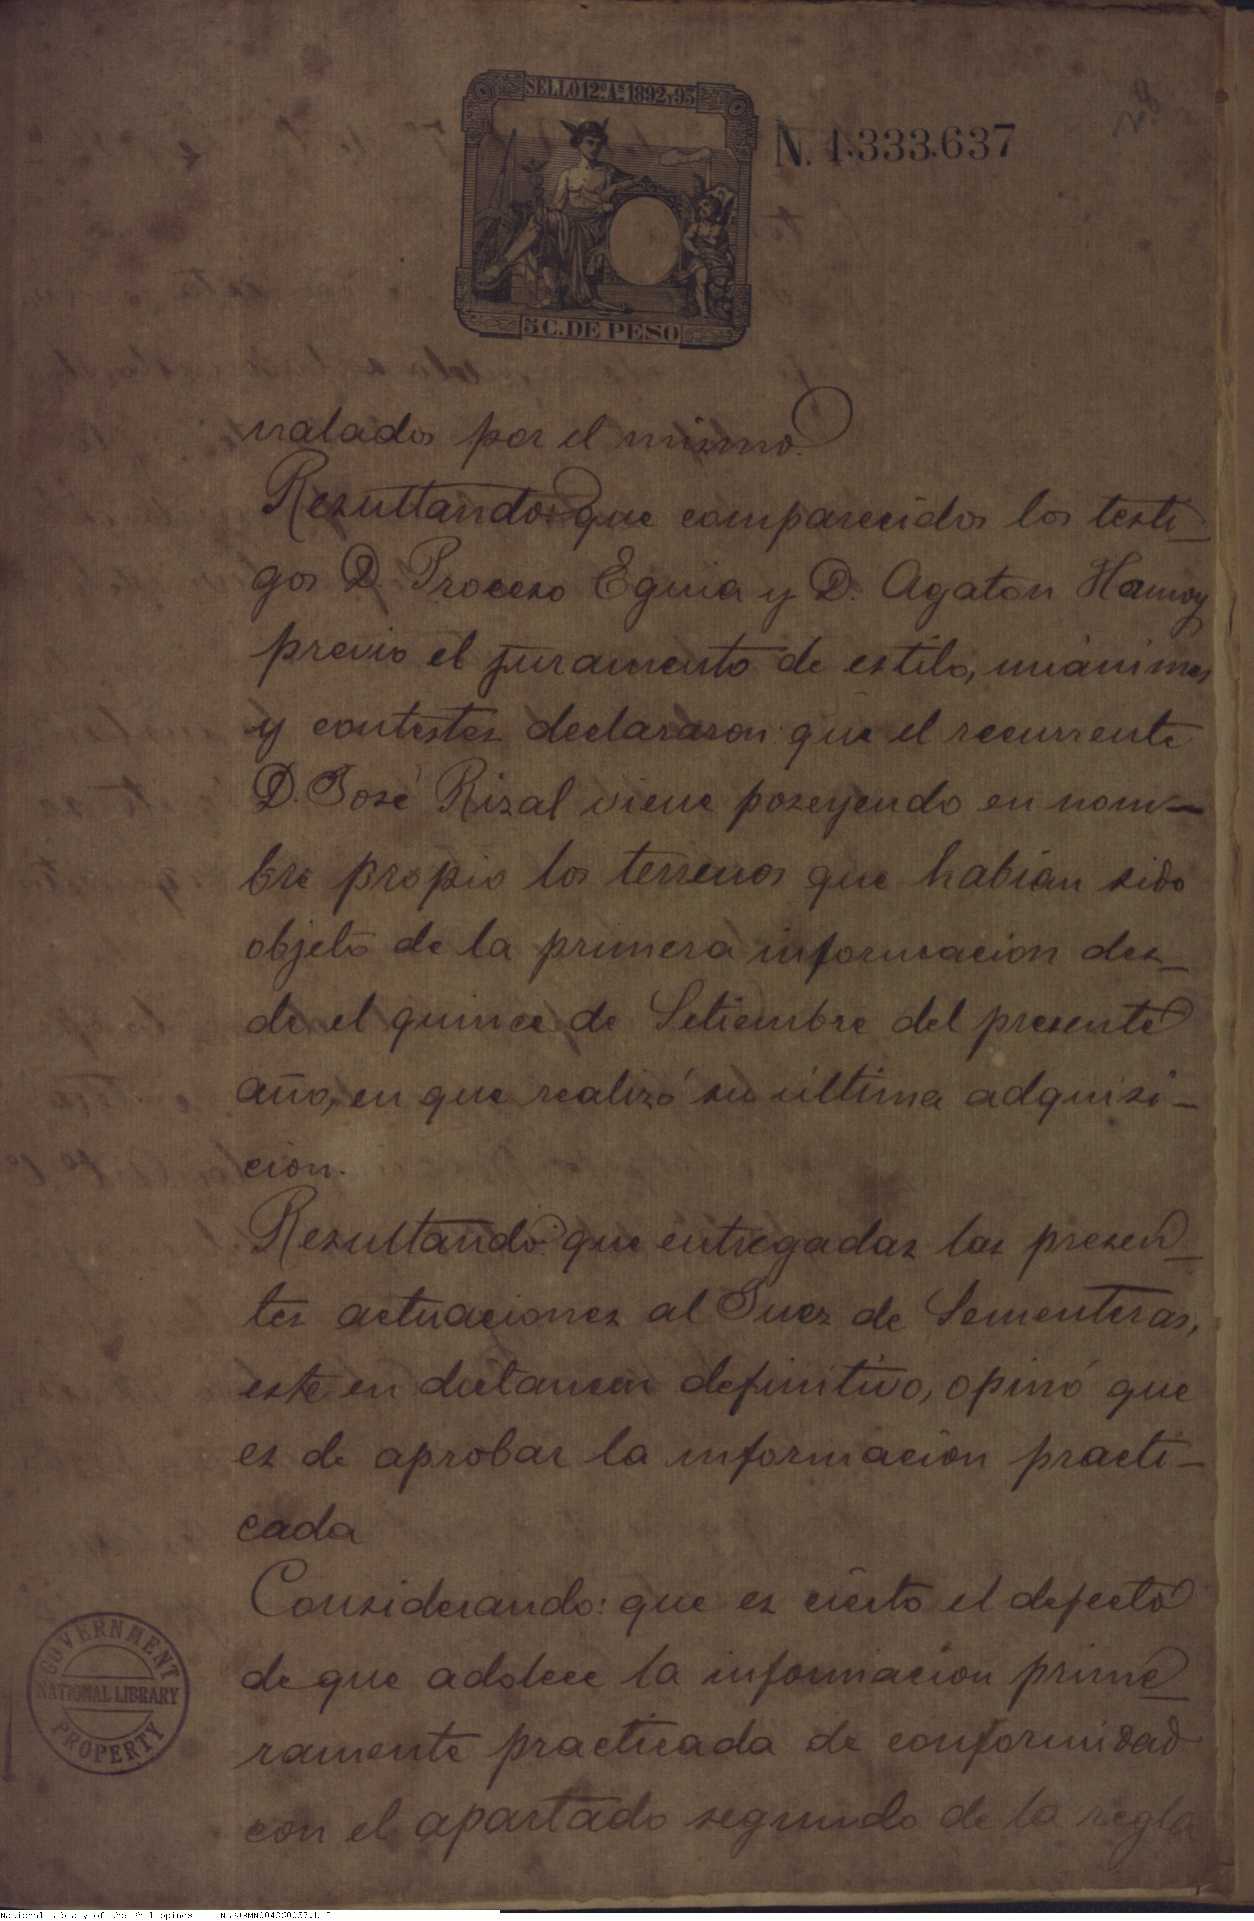 SELLO 12º Aº 1892 Y 93
N. 1.333.637
5 C. DE PESO
nalados por el mismo.
Resultando: que comparecidos los testi-
gos D. Proceso Eguia y D. Agaton Hamoy
previo el juramento de estilo, unánimes
y contestes declararon que el recurrente
D. José Rizal viene poseyendo en nom-
bre propio los terrenos que habian sido
objeto de la primera informacion des-
de el quince de Setiembre del presente
año, en que realizó su última adquisi-
cion.
Resultando: que entregadas las presen-
tes actuaciones al Juez de Sementeras,
este en dictamen definitivo, opinó que
es de aprobar la informacion practi-
cada
Considerando: que es cierto el defecto
de que adolece la informacion prime-
ramente practicada de conformidad
con el apartado segundo de la regla
GOVERNMENT
NATIONAL LIBRARY
PROPERTY
National Library of the Philippines